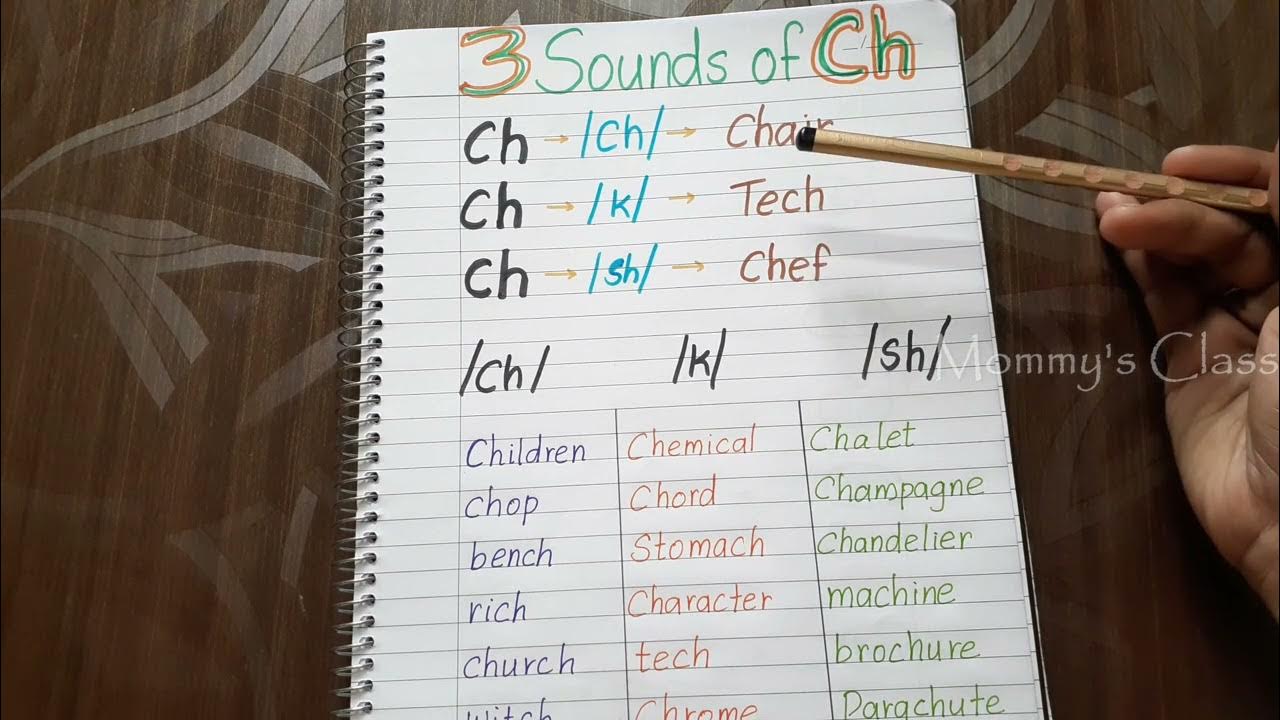 3 Sounds of Ch
Ch → /Ch/ → Chair
Ch → /k/ → Tech
Ch → /Sh/ → Chef
/Ch/ /k/ /Sh/
Mommy's Class
Children Chemical Chalet
Chop Chord Champagne
bench Stomach Chandelier
rich Character machine
Church tech brochure
witch Chrome Parachute